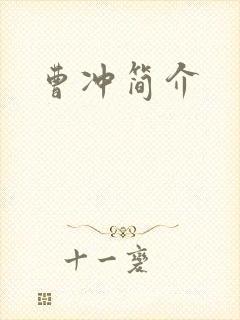 曹冲简介
十一褒